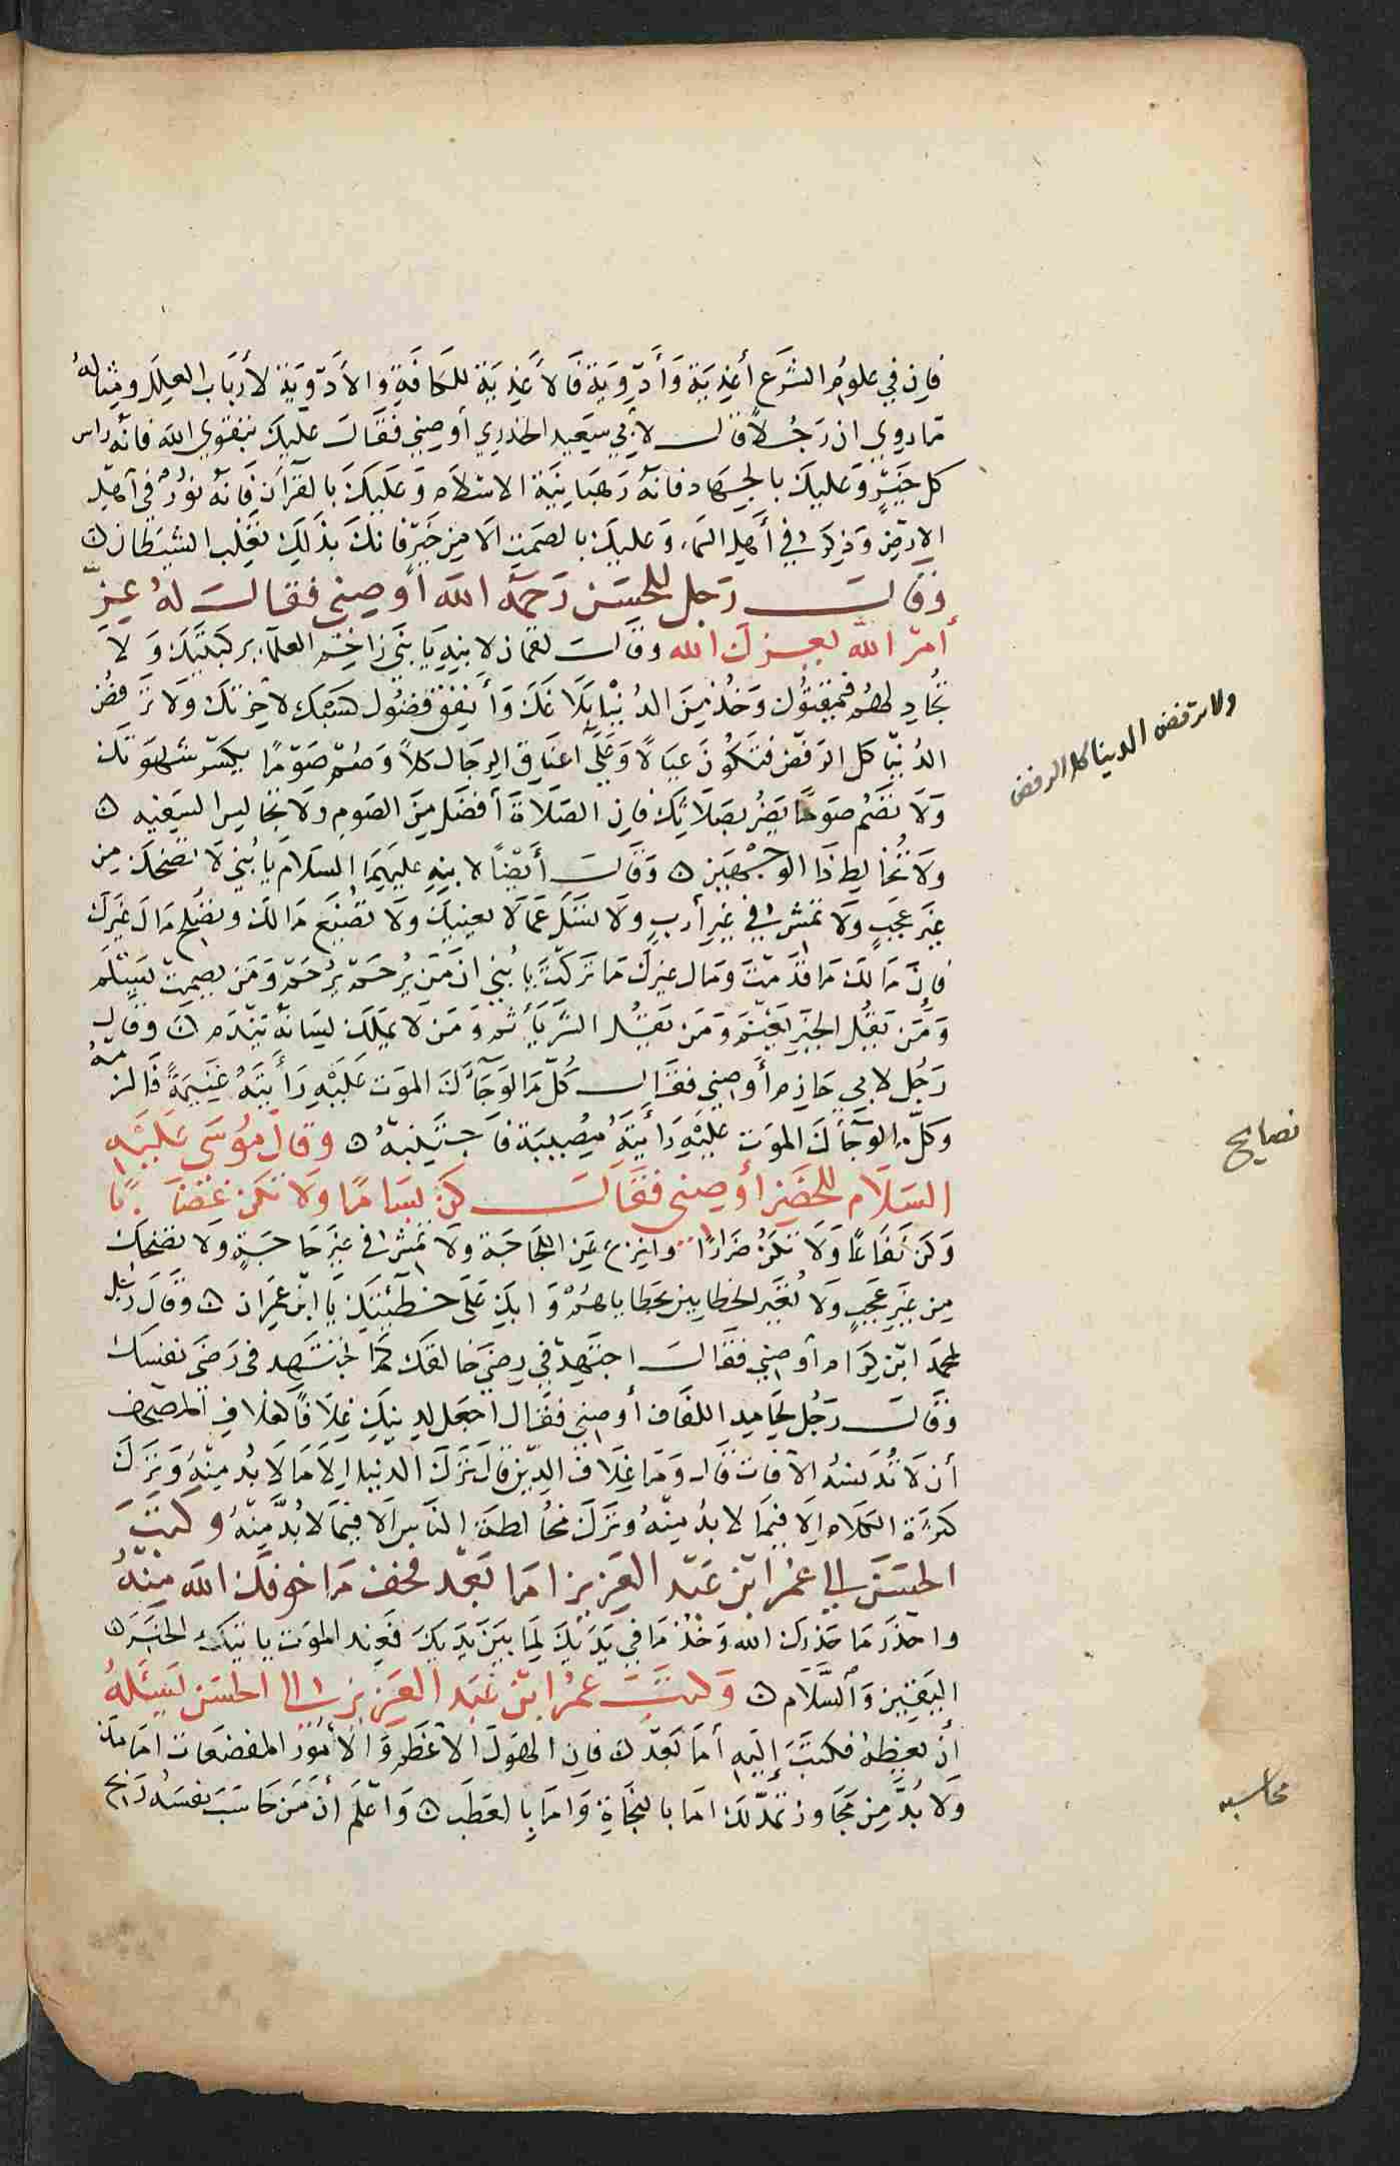 فان في علوم الشرع أغذية وأدوية فالأغذية للكافة والأدوية لأرباب العلل ومثاله
ما روي ان رجلا قال لأبي سعيد الخدري أوصيني فقال عليك بتقوى الله فانه راس
كل خير وعليك بالجهاد فانه رهبانية الاسلام وعليك بالقرآن فانه نور في أهل
الارض وذكر في أهل السماء وعليك بالصمت الا من خير فانك بذلك تغلب الشيطان
وقال رجل للحسن رحمه الله أوصيني فقال له عز
أمر الله يعزك الله وقال لقمان لابنه يا بني زاحم العلماء بركبتيك ولا
تجادلهم فيمقتوك وخذ من الدنيا بلاغك وأنفق فضول كسبك لآخرتك ولا ترفض
الدنيا كل الرفض فتكون عيالا وعلى اعناق الرجال كلا وصم صوما يكسر شهوتك
ولا تصم صوما يضر بصلاتك فان الصلاة أفضل من الصوم ولا تجالس السفيه
ولا تخالط ذا الوجهين وقال أيضا لابنه عليهما السلام يا بني لا تضحك من
غير عجب ولا تمش في غير أرب ولا تسئل عما لا يعنيك ولا تضيع مالك وتصلح مال غيرك
فان مالك ما قدمت ومال غيرك ما تركت يا بني ان من يرحم يرحم ومن يصمت يسلم
ومن يقل الخير يغنم ومن يقل الشر يأثم ومن لا يملك لسانه يندم وقال
رجل لابي حازم أوصيني فقال كل ما لو جآءك الموت عليه رأيته غنيمة فالزمه
وكل ما لو جآءك الموت عليه رأيته مصيبة فاجتنبه وقال موسى عليه
السلام للخضر أوصيني فقال كن بساما ولا تكن غضابا
وكن نفاعا ولا تكن ضرارا وانزع عن اللجاجة ولا تمش في غير حاجة ولا تضحك
من غير عجب ولا تعير الخطايين بخطاياهم وابك على خطيئتك يا ابن عمران وقال رجل
لمحمد ابن كرام أوصيني فقال اجتهد في رضى خالقك كما تجتهد في رضى نفسك
وقال رجل لحامد اللفاف أوصيني فقال اجعل لدينك غلافا كغلاف المصحف
أن لا تدنسه الآفات قال وما غلاف الدين قال ترك الدنيا الا ما لا بد منه وترك
كثرة الكلام الا فيما لا بد منه وترك مخالطة الناس الا فيما لا بد منه وكتب
الحسن الى عمر ابن عبد العزيز اما بعد فخف ما خوفك الله منه
واحذر ما حذرك الله وخذ ما في يديك لما بين يديك فعند الموت ياتيك الخبر
اليقين والسلام وكتب عمر ابن عبد العزيز الى الحسن يسئله
أن يعظه فكتب إليه أما بعد فان الهول الاعظم والامور المفضعات امامك
ولا بد من مجاوزتك ذلك اما بالنجاة واما بالعطب واعلم أن من حاسب نفسه ربح
ولا ترفض الدنيا كل الرفض
نصايح
محاسبه